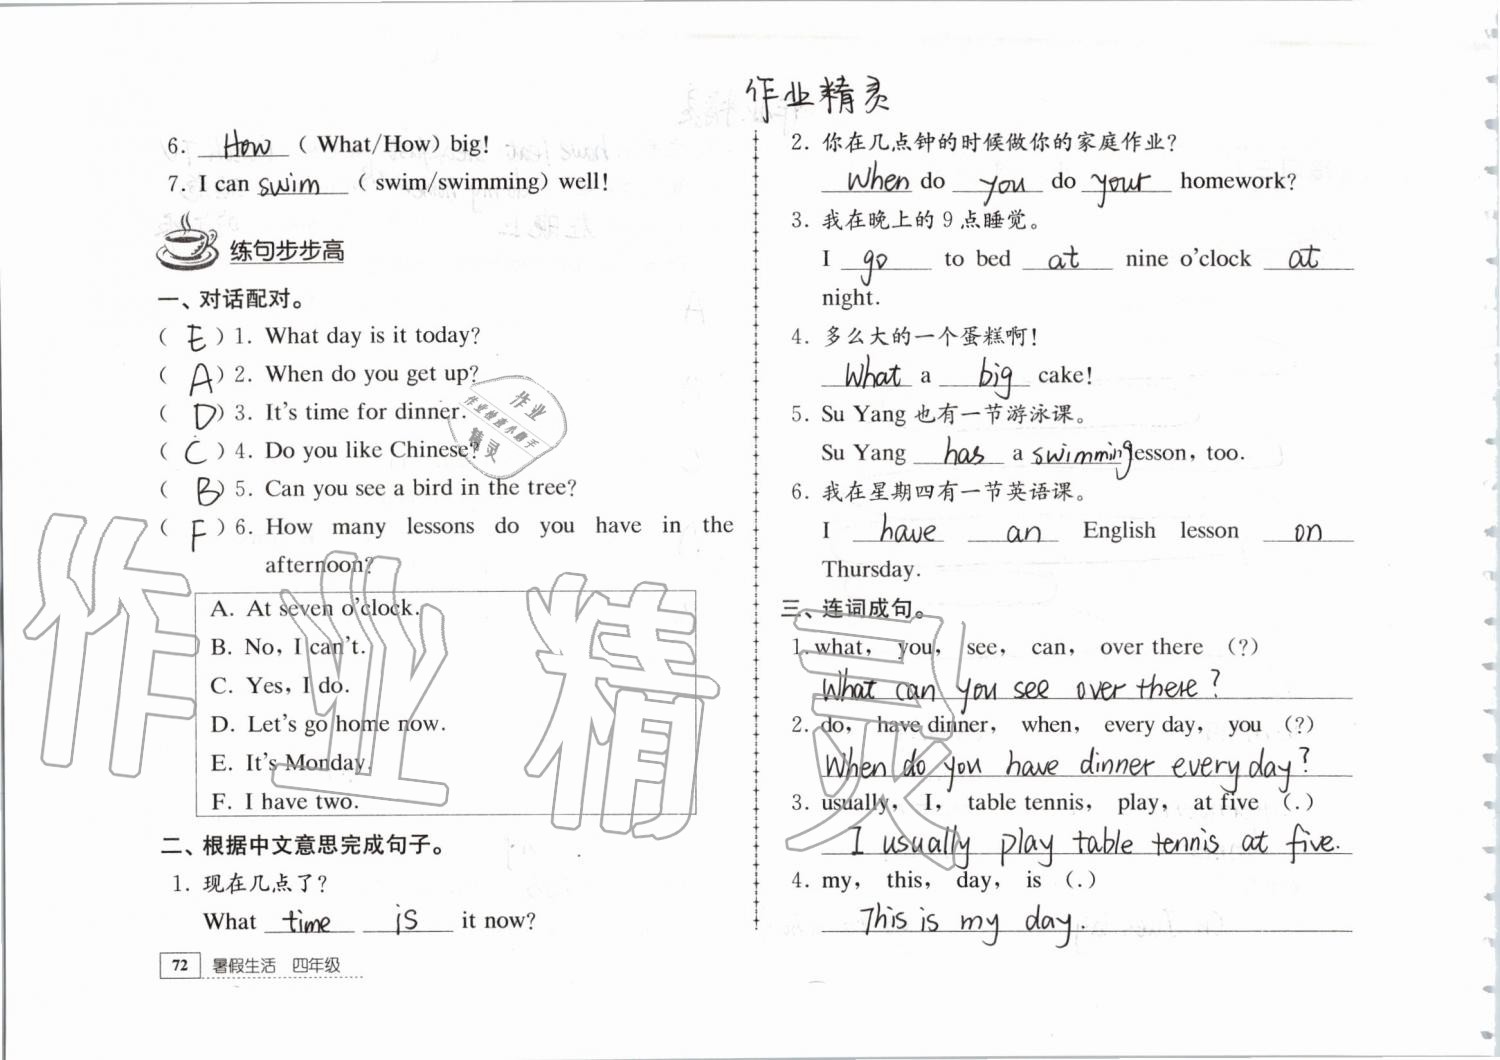 作业精灵
6. How ( What/How) big!
7. I can swim ( swim/swimming) well!
练句步步高
一、对话配对。
( E ) 1. What day is it today?
( A ) 2. When do you get up?
( D ) 3. It's time for dinner.
( C ) 4. Do you like Chinese?
( B ) 5. Can you see a bird in the tree?
( F ) 6. How many lessons do you have in the
afternoon?
A. At seven o'clock.
B. No, I can't.
C. Yes, I do.
D. Let's go home now.
E. It's Monday.
F. I have two.
二、根据中文意思完成句子。
1. 现在几点了?
What time is it now?
72 暑假生活 四年级
2. 你在几点钟的时候做你的家庭作业?
When do you do your homework?
3. 我在晚上的 9 点睡觉。
I go to bed at nine o'clock at
night.
4. 多么大的一个蛋糕啊!
What a big cake!
5. Su Yang 也有一节游泳课。
Su Yang has a swimming lesson, too.
6. 我在星期四有一节英语课。
I have an English lesson on
Thursday.
三、连词成句。
1. what, you, see, can, over there (?)
What can you see over there?
2. do, have dinner, when, every day, you (?)
When do you have dinner every day?
3. usually, I, table tennis, play, at five (.)
I usually play table tennis at five.
4. my, this, day, is (.)
This is my day.
作业
作业快速小助手
精灵
作业精灵